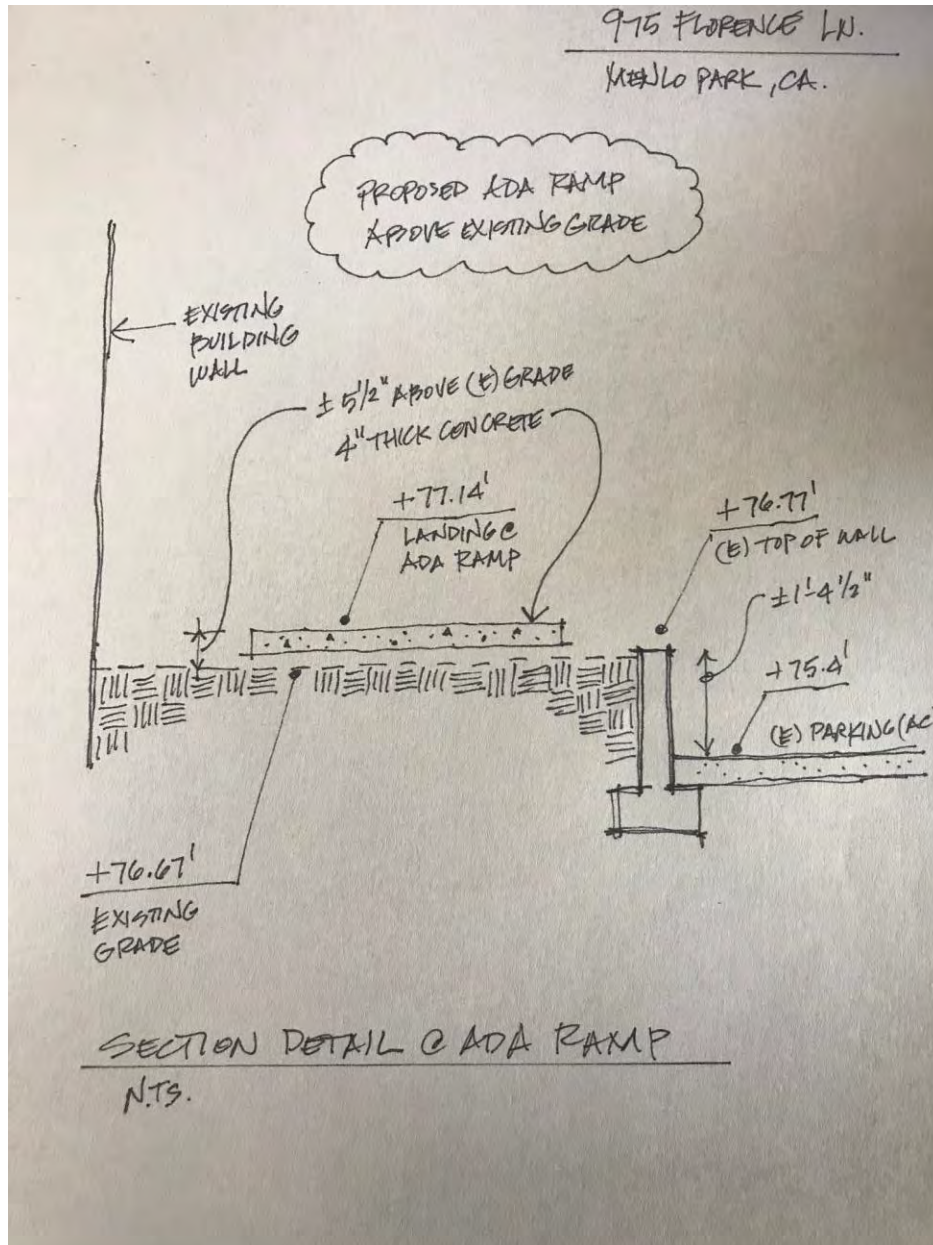 975 FLORENCE LN.
MENLO PARK, CA.
PROPOSED ADA RAMP
ABOVE EXISTING GRADE
EXISTING
BUILDING
WALL
± 5 1/2" ABOVE (E) GRADE
4" THICK CONCRETE
+77.14'
LANDING @
ADA RAMP
+76.77'
(E) TOP OF WALL
±1'-4 1/2"
+75.4'
(E) PARKING (AC
+76.67'
EXISTING
GRADE
SECTION DETAIL @ ADA RAMP
N.T.S.